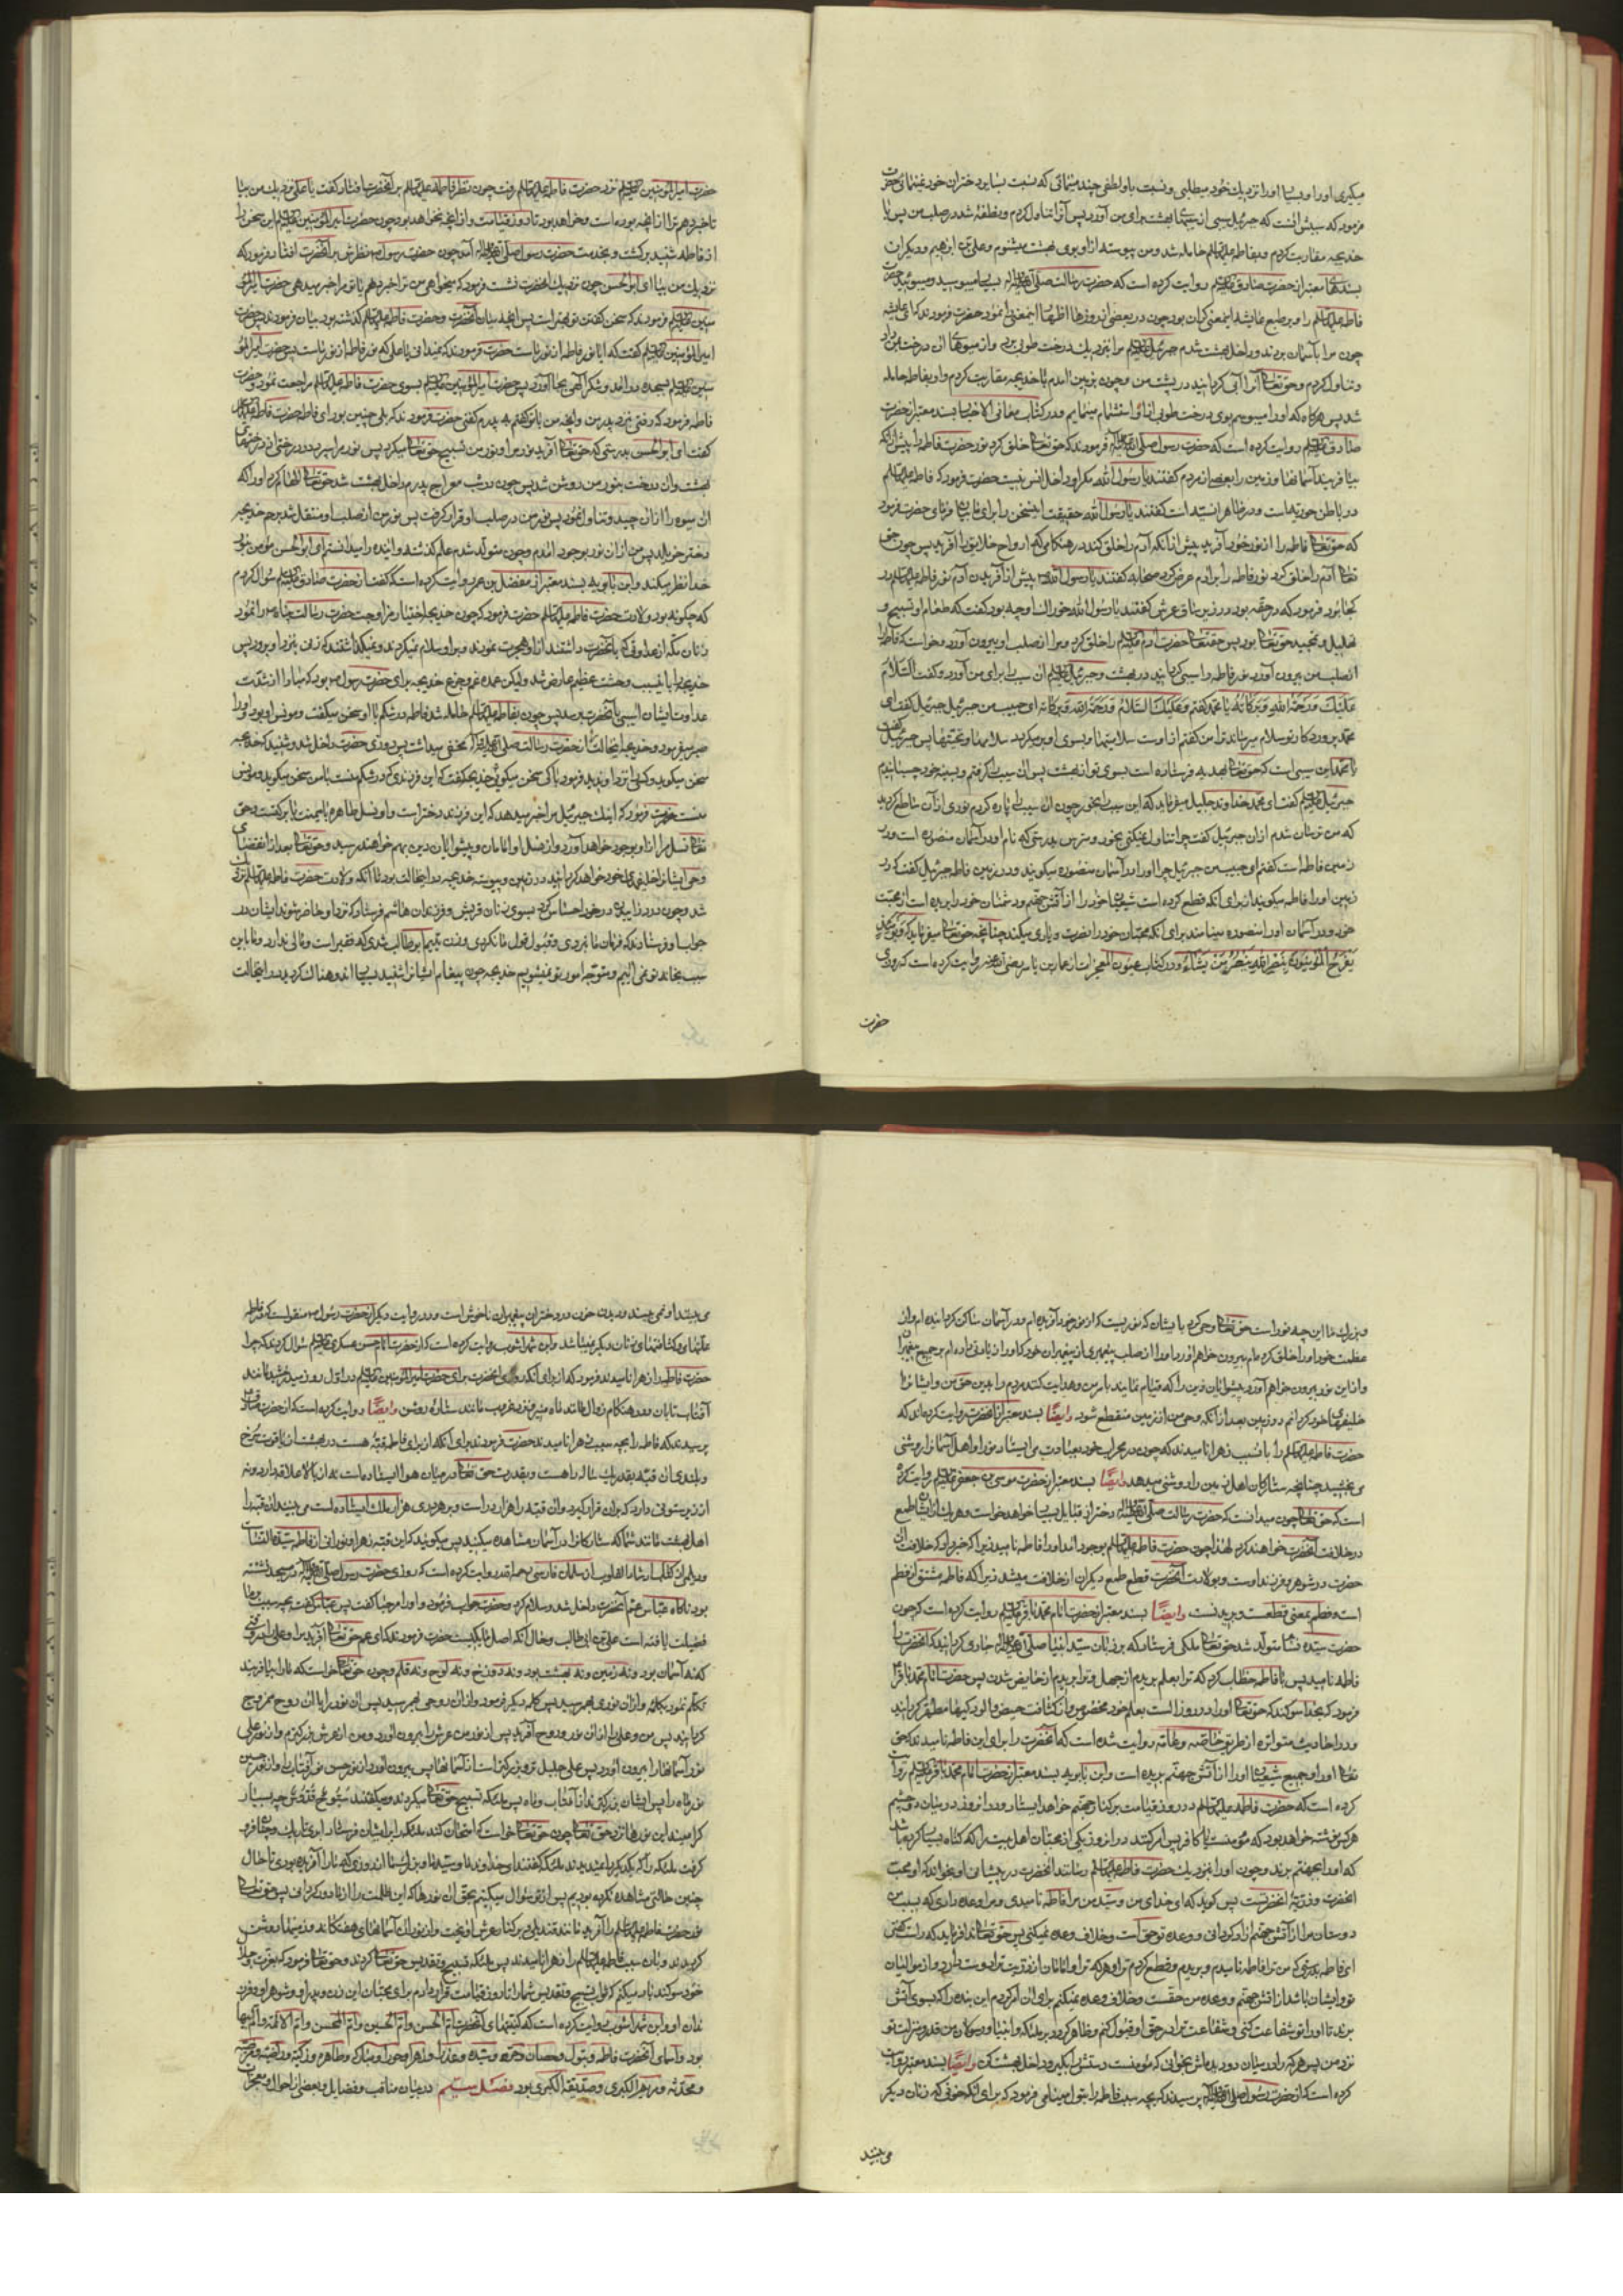 میگیری او را و بسیار او را نزدیک خود میطلبی و نسبت باو لطفی چند مینمائی که نسبت بسایر دختران خود نمینمائی حضرت
فرمود که سببش آنست که جبرئیل سیبی از سیبهای بهشت برای من آورد پس آنرا تناول کردم و نطفه شد در صلب من پس با
خدیجه مقاربت کردم و بفاطمه علیها السلم حامله شد و من پیوسته از او بوی بهشت میشنوم و علی بن ابرهیم و دیگران
بسندهای معتبر از حضرت صادق علیه السلم روایت کرده است که حضرت رسالت صلی الله علیه و آله
فاطمه علیها السلم را و بر طبع عایشه این معنی گران بود چون در بعضی از روزها اظهار این معنی نمود حضرت فرمودند که ای عایشه
چون مرا بآسمان بردند و داخل بهشت شدم جبرئیل علیه السلم مرا بنزدیک درخت طوبی برد و از میوهای آن درخت بمن داد
و تناول کردم و حق تعالی آنرا آبی گردانید در پشت من و چون بزمین آمدم با خدیجه مقاربت کردم و او بفاطمه حامله
شد پس هرگاه که او را میبوسم بوی درخت طوبی از او استشمام مینمایم و در کتاب معانی الاخبار بسند معتبر از حضرت
صادق علیه السلم روایت کرده است که حضرت رسول صلی الله علیه و آله فرمودند که حق تعالی خلق کرد نور حضرت فاطمه را پیش از آنکه
بیافریند آسمانها و زمین را بعضی از مردم گفتند یا رسول الله مگر او داخل انس نیست حضرت فرمود که فاطمه علیها السلم
در باطن حوریه است و در ظاهر انسیه است گفتند یا رسول الله حقیقت این سخن را برای ما بیان فرمای حضرت فرمود
که حق تعالی فاطمه را از نور خود آفرید پیش از آنکه آدم را خلق کند در هنگامی که ارواح خلایق را آفرید پس چون حق
تعالی آدم را خلق کرد نور فاطمه را بر آدم عرض کرد صحابه گفتند یا رسول الله پیش از آفریدن آدم نور فاطمه علیها السلم در
کجا بود فرمود که در حقه بود در زیر ساق عرش گفتند یا رسول الله خوراک او چه بود گفت که طعام او تسبیح و
تهلیل و تمجید حق تعالی بود پس حق تعالی حضرت آدم علیه السلم را خلق کرد و مرا از صلب او بیرون آورد و خواست که فاطمه را
از صلب من بیرون آورد نور فاطمه را سیبی گردانید در بهشت و جبرئیل علیه السلم آن سیب را برای من آورد و گفت السلام
علیک و رحمة الله و برکاته یا محمد گفتم و علیک السلام و رحمة الله و برکاته ای حبیب من جبرئیل جبرئیل گفت ای
محمد پروردگار تو سلام میرساند ترا من گفتم از اوست سلامتیها و بسوی او برمیگردد سلامها و تحیتها پس جبرئیل گفت
یا محمد این سیبی است که حق تعالی بهدیه فرستاده است بسوی تو از بهشت پس آن سیب را گرفتم و بسینه خود چسبانیدم
جبرئیل علیه السلم گفت ای محمد خداوند جلیل میفرماید که این سیب را بخور چون آن سیب را پاره کردم نوری از آن ساطع گردید
که من ترسان شدم از آن جبرئیل گفت چرا تناول نمیکنی بخور و مترس بدرستی که نام او در آسمان منصوره است و در
زمین فاطمه است گفتم ای حبیب من جبرئیل چرا او را در آسمان منصوره میگویند و در زمین فاطمه جبرئیل گفت که در
زمین او را فاطمه میگویند از برای آنکه قطع کرده است شیعیان خود را از آتش جهنم و دشمنان خود را بریده است از محبت
خود و در آسمان او را منصوره مینامند برای آنکه محبان خود را نصرت و یاری میکند چنانچه حق تعالی میفرماید که و یومئذ
یفرح المؤمنون بنصر الله ینصر من یشاء و در کتاب عیون المعجزات از عمار بن یاسر رضی الله عنه روایت کرده است که روزی
حضرت
حضرت امیر المؤمنین علیه السلم نزد حضرت فاطمه علیها السلم رفت چون نظر فاطمه علیها السلم بر آنحضرت افتاد گفت یا علی نزدیک من بیا
تا خبر دهم ترا از آنچه بوده است و خواهد بود تا روز قیامت و از آنچه نخواهد بود چون حضرت امیر المؤمنین علیه السلم این سخن را
از فاطمه شنید برگشت و بخدمت حضرت رسول صلی الله علیه و آله آمد چون حضرت رسول ص نظرش بر آنحضرت افتاد فرمود که
نزدیک من بیا ای ابو الحسن چون نزدیک آنحضرت نشست فرمود که میخواهی من ترا خبر دهم یا تو مرا خبر میدهی حضرت امیر المؤ
منین علیه السلم فرمودند که سخن گفتن تو بهتر است پس آنچه میان آنحضرت و حضرت فاطمه علیها السلم گذشته بود بیان فرمودند پس حضرت
امیر المؤمنین علیه السلم گفت که آیا نور فاطمه از نور ماست حضرت فرمودند که نمیدانی یا علی که نور فاطمه از نور ماست پس حضرت امیر المؤ
منین علیه السلم بسجده درآمد و شکر الهی بجا آورد پس حضرت امیر المؤمنین علیه السلم بسوی حضرت فاطمه علیها السلم مراجعت نمود حضرت
فاطمه فرمود که رفتی نزد پدر من و آنچه من با تو گفتم به پدرم گفتی حضرت فرمودند که بلی چنین بود ای فاطمه حضرت فاطمه علیها السلم
گفت ای ابو الحسن بدرستی که حق تعالی آفرید نور مرا و نور من تسبیح حق تعالی میکرد پس نور مرا سپرد در درختی از درختهای
بهشت و آن درخت بنور من روشن شد پس چون در شب معراج پدرم داخل بهشت شد حق تعالی الهام کرد او را که
آن میوه را از آن چید و تناول نمود پس نور من در صلب او قرار گرفت پس نور من از صلب او منتقل شد برحم خدیجه
دختر خویلد پس من از آن نور بوجود آمدم و چون متولد شدم علم گذشته و آینده را میدانستم ای ابو الحسن مؤمن بنور
خدا نظر میکند و ابن بابویه بسند معتبر از مفضل بن عمر روایت کرده است که گفت از حضرت صادق علیه السلم سؤال کردم
که چگونه بود ولادت حضرت فاطمه علیها السلم حضرت فرمود که چون خدیجه اختیار مزاوجت حضرت رسالت پناه ص را نمود
زنان مکه از عداوتی که بآنحضرت داشتند از او هجرت نمودند و بر او سلام نمیکردند و نمیگذاشتند که زنی بنزد او برود پس
خدیجه را باین سبب وحشت عظیم عارض شد ولیکن عمده غم و جزع خدیجه برای حضرت رسول ص بود که مبادا از شدت
عداوت ایشان آسیبی بآنحضرت برسد پس چون بفاطمه علیها السلم حامله شد فاطمه در شکم با او سخن میگفت و مونس او بود او را
صبر میفرمود و خدیجه این حالت را از حضرت رسالت صلی الله علیه و آله مخفی میداشت پس روزی حضرت داخل شد و شنید که خدیجه
سخن میگوید و کسی را نزد او ندید فرمود با کی سخن میگوئی خدیجه گفت که این فرزندی که در شکم منست با من سخن میگوید و مونس
منست حضرت فرمود که اینک جبرئیل مرا خبر میدهد که این فرزند دختر است و او نسل طاهره با میمنت با برکتست و حق
تعالی نسل مرا از او بوجود خواهد آورد و از نسل او امامان و پیشوایان دین بهم خواهند رسید و حق تعالی بعد از انقضای
وحی ایشانرا خلیفهای خود خواهد گردانید در زمین و پیوسته خدیجه در این حالت بود تا آنکه ولادت حضرت فاطمه علیها السلم نزدیک
شد و چون درد زائیدن در خود احساس کرد بسوی زنان قریش و فرزندان هاشم فرستاد که نزد او حاضر شوند ایشان در
جواب او فرستادند که فرمان ما نبردی و قبول قول ما نکردی و زن یتیم ابو طالب شدی که فقیر است و مالی ندارد و ما باین
سبب بخانه تو نمی‌آئیم و متوجه امور تو نمیشویم خدیجه چون پیغام ایشانرا شنید بسیار اندوهناک گردید در این حالت
و بزرگ ما این چه نور است حق تعالی وحی کرد بایشان که نوریست که از نور خود آفریده‌ام و در آسمان ساکن گردانیده‌ام و از
عظمت خود او را خلق کرده‌ام بیرون خواهم آورد او را از صلب پیغمبری از پیغمبران خود که او را زیادتی داده‌ام بر جمیع پیغمبران
و از این نور بیرون خواهم آورد پیشوایان دین را که قیام نمایند بامر من و هدایت کنند مردم را بدین حق من و ایشانرا
خلیفهای خود گردانم در زمین بعد از آنکه وحی من از زمین منقطع شود وایضاً بسند معتبر از آنحضرت روایت کرده‌اند که
حضرت فاطمه علیها السلم را باین سبب زهرا نامیدند که چون در محراب خود بعبادت می‌ایستاد نور او اهل آسمانرا روشنی
می‌بخشید چنانچه ستارگان اهل زمین را روشنی میدهد وایضاً بسند معتبر از حضرت موسی بن جعفر علیه السلم روایت کرده
است که حق تعالی چون میدانست که حضرت رسالت صلی الله علیه و آله دختر از قبایل بسیار خواهد خواست و هر یک از ایشان طمع
در خلافت آنحضرت خواهند کرد لهذا چون حضرت فاطمه علیها السلم بوجود آمد او را فاطمه نامید زیرا که خبر داد که خلافت آن
حضرت در شوهر و فرزند اوست و بولادت آنحضرت قطع طمع دیگران از خلافت میشد زیرا که فاطمه مشتق از فطم
است و فطم بمعنی قطعست و بریدنست وایضاً بسند معتبر از حضرت امام محمد باقر علیه السلم روایت کرده است که چون
حضرت سیده نسا متولد شد حق تعالی ملکی فرستاد که بر زبان سید انبیا صلی الله علیه و آله جاری گردانید که آنحضرت را
فاطمه نامید پس با فاطمه خطاب کرد که ترا بعلم بریدم از جهل و ترا بریدم از حایض شدن پس حضرت امام محمد باقر ع
فرمود که بخدا سوگند که حق تعالی او را در روز الست بعلم خود مخصوص و از کثافت حیض و آلودگیها مطهر گردانید
و در احادیث متواتره از طریق خاصه و عامه روایت شده است که آنحضرت را برای این فاطمه نامیدند که حق
تعالی او را و جمیع شیعیان او را از آتش جهنم بریده است و ابن بابویه بسند معتبر از حضرت امام محمد باقر علیه السلم روایت
کرده است که حضرت فاطمه علیها السلم در روز قیامت بر کنار جهنم خواهد ایستاد و در آنروز در میان دو چشم
هر کس نوشته خواهد بود که مؤمنست یا کافر پس امر کنند در آنروز یکی از محبان اهل بیت را که گناه بسیار کرده باشد
که او را بجهنم برند و چون او را بنزدیک حضرت فاطمه علیها السلم رسانند آنحضرت در پیشانی او بخواند که او محب
آنحضرت و ذریه آنحضرتست پس گوید که ای خدای من و سید من مرا فاطمه نامیدی و مرا وعده دادی که بسبب من
دوستان مرا از آتش جهنم آزاد گردانی و وعده تو حق است و خلاف وعده نمیکنی پس حق تعالی ندا فرماید که راست گفتی
ای فاطمه بدرستی که من ترا فاطمه نامیدم و بریدم و قطع کردم ترا و هر که ترا و امامان از ذریت ترا دوست دارد و از موالیان
تو و ایشان باشد از آتش جهنم و وعده من حقست و خلاف وعده نمیکنم برای آن امر کردم این بنده را که بسوی آتش
برند تا او را تو شفاعت کنی و شفاعت ترا در حق او قبول کنم و ظاهر گردد بر ملئکه و انبیا و رسولان من قدر و منزلت تو
نزد من پس هر که را در میان دو دیده‌اش بخوانی که مؤمنست دستش را بگیر و داخل بهشت کن وایضاً بسند معتبر روایت
کرده است که از حضرت رسول صلی الله علیه و آله پرسیدند که بچه سبب فاطمه را بتول مینامی فرمود که برای آنکه خونی که زنان دیگر
می‌بینند
می‌بینند او نمی‌بیند و دیدن خون در دختران پیغمبران ناخوش است و در روایت دیگر از حضرت رسول ص منقولست که فاطمه
علیها مانند زنان دیگر نمیباشد و ابن شهرآشوب روایت کرده است که از حضرت امام حسن عسکری علیه السلم سؤال کردند که چرا
حضرت فاطمه را زهرا نامیدند فرمود که از برای آنکه روی آنحضرت برای حضرت امیر المؤمنین علیه السلم در اول روز میدرخشید مانند
آفتاب تابان و در هنگام زوال مانند ماه منیر و نزد غروب مانند ستاره روشن وایضاً روایت کرده است که از حضرت صادق
پرسیدند که فاطمه را بچه سبب زهرا نامیدند حضرت فرمودند برای آنکه از برای فاطمه قبه هست در بهشت از یاقوت سرخ
و بلندی آن قبه بقدر یک ساله راهست و بقدرت حق تعالی در میان هوا ایستاده است نه از بالا علاقه دارد و نه
از زیر ستونی دارد که بر آن قرار گیرد و آن قبه را هزار در است و بر هر دری هزار ملک ایستاده است می‌بینند آن قبه را
اهل بهشت مانند شما که ستارگانرا در آسمان مشاهده میکنید پس میگویند که این قبه زهرا و نورانی از فاطمه سیده النساست
و دیلمی در کتاب ارشاد القلوب از سلمان فارسی رحمه الله روایت کرده است که روزی حضرت رسول صلی الله علیه و آله در مسجد نشسته
بود ناگاه عباس عم آنحضرت داخل شد و سلام کرد و حضرت جواب فرمود و او را مرحبا گفت پس عباس گفت بچه سبب بر ما
فضیلت یافته است علی بن ابی طالب و حال آنکه اصل ما یکیست حضرت فرمودند که ای عم حق تعالی آفرید مرا و علی را در وقتی
که نه آسمان بود و نه زمین و نه بهشت بود و نه دوزخ و نه لوح و نه قلم و چون حق تعالی خواست که ما را بیافریند
تکلم نمود بکلمه و از آن نوری بهم رسید پس کلمه دیگر فرمود و از آن روحی بهم رسید پس آن نور را با آن روح ممزوج
گردانید پس من و علی را از آن نور و روح آفرید پس از نور من عرش را بیرون آورد و من از عرش بزرگترم و از نور علی
نور آسمانها را بیرون آورد پس علی جلیل‌تر و بزرگتر است از آسمانها پس بیرون آورد از نور حسن نور آفتاب را و از نور حسین
نور ماه را پس ایشان بزرگترند از آفتاب و ماه پس ملئکه تسبیح حق تعالی میکردند و میگفتند سبوح قدوس چه بسیار
گرامیند این نورها نزد حق تعالی چون حق تعالی خواست که امتحان کند ملئکه را بر ایشان فرستاد ابری تاریک و چنان فرو
گرفت ملئکه را که یکدیگر را نمیدیدند ملئکه گفتند ای خداوند ما و سید ما و بزرگ ما از روزی که ما را آفریده بودی تا حال
چنین حالتی مشاهده نکرده بودیم پس از تو سؤال میکنیم بحق آن نورها که این ظلمت را از ما دور گردانی پس حق تعالی
نور حضرت فاطمه علیها السلم را آفرید مانند قندیلی و بر کنار عرش آویخت و از نور آن آسمانهای هفتگانه و زمینها روشن
گردیدند و باین سبب فاطمه علیها السلم را زهرا نامیدند پس ملئکه تسبیح و تقدیس حق تعالی کردند و حق تعالی فرمود که بعزت و جلال
خود سوگند یاد میکنم که ثواب تسبیح و تقدیس شما را تا روز قیامت قرار دادم برای محبان این زن و پدر او و شوهر او و فرز
ندان او و ابن شهرآشوب روایت کرده است که کنیتهای آنحضرت ام الحسن و ام الحسین و ام المحسن و ام الائمة و ام ابیها
بود و اسمای آنحضرت فاطمه و بتول و حصان و حره و سیده و عذرا و زهرا و حورا و مبارکه و طاهره و زکیه و راضیه و مرضیه
و محدثه و مریم الکبری و صدیقه الکبری بود فصل سیم در بیان مناقب و فضایل و بعضی از احوال و معجزات